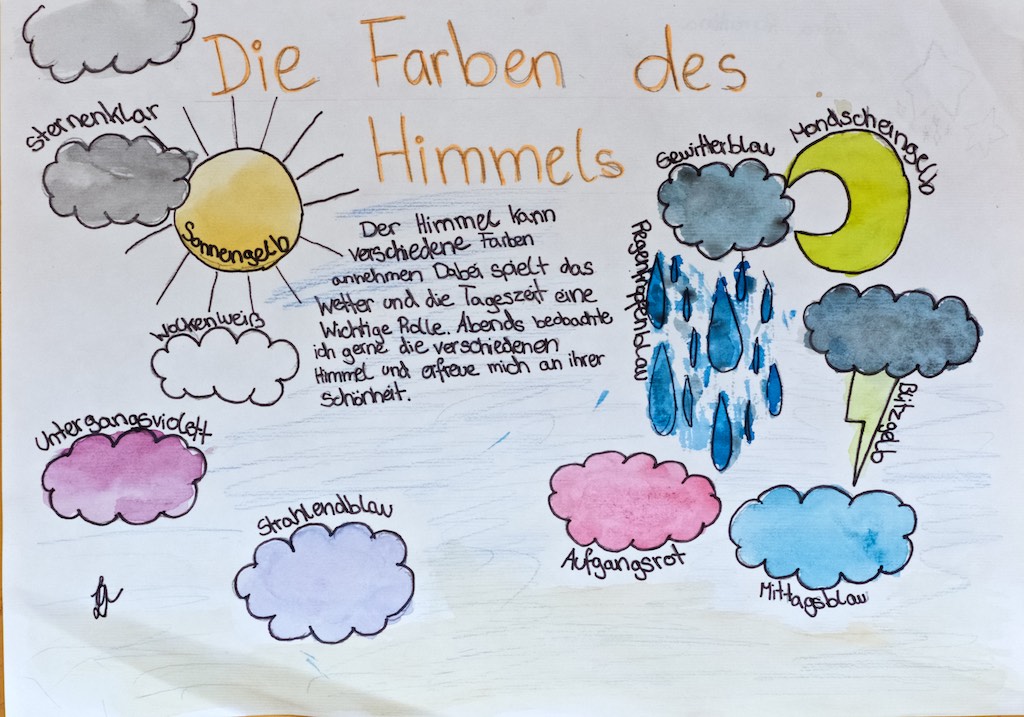 Die Farben des
Himmels
Sternenklar
Sonnengelb
Gewitterblau
Mondscheingelb
Der Himmel kann
verschiedene Farben
annehmen Dabei spielt das
Wetter und die Tageszeit eine
Wichtige Rolle. Abends beobachte
ich gerne die verschiedenen
Himmel und erfreue mich an ihrer
Schönheit.
Regentropfenblau
Wolkenweiß
Blitzgelb
Untergangsviolett
Strahlendblau
Aufgangsrot
Mittagsblau